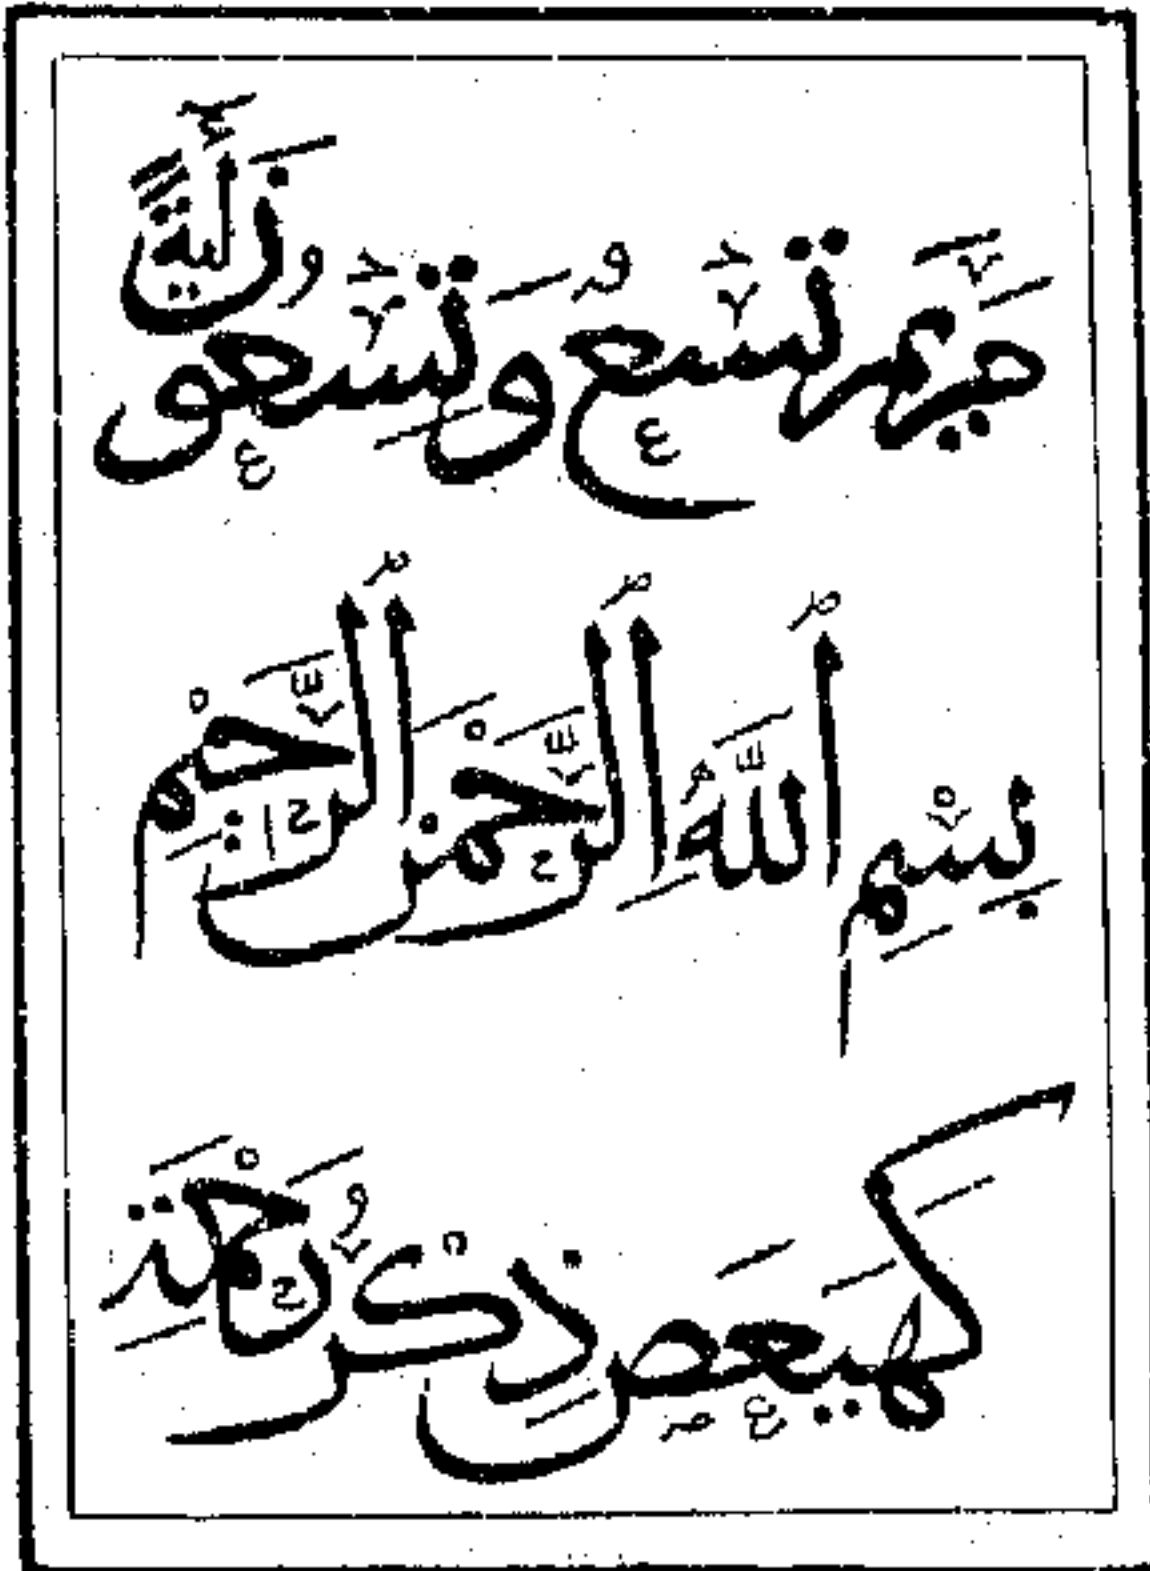 مَرْيَمَ تِسْعٌ وَتِسْعُونَ آيَةً
بِسْمِ اللَّهِ الرَّحْمَنِ الرَّحِيمِ
كَهَيَعَصَ ذِكْرُ رَحْمَتِ